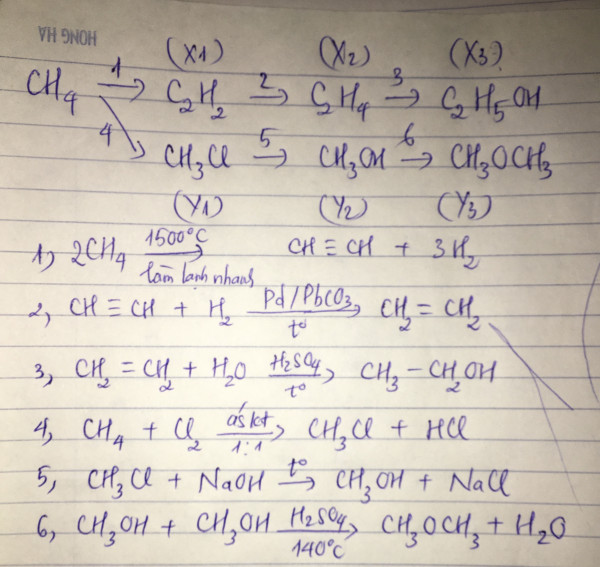 HONG HA
(X1) (X2) (X3)
CH₄ →¹ C₂H₂ →² C₂H₄ →³ C₂H₅OH
4 → CH₃Cl →⁵ CH₃OH →⁶ CH₃OCH₃
(Y1) (Y2) (Y3)
1, 2CH₄ 1500°C → CH ≡ CH + 3H₂
làm lạnh nhanh
2, CH ≡ CH + H₂ Pd/PbCO₃ → CH₂ = CH₂
t°
3, CH₂ = CH₂ + H₂O H₂SO₄ → CH₃ – CH₂OH
t°
4, CH₄ + Cl₂ áskt → CH₃Cl + HCl
1:1
5, CH₃Cl + NaOH t° → CH₃OH + NaCl
6, CH₃OH + CH₃OH H₂SO₄ → CH₃OCH₃ + H₂O
140°C